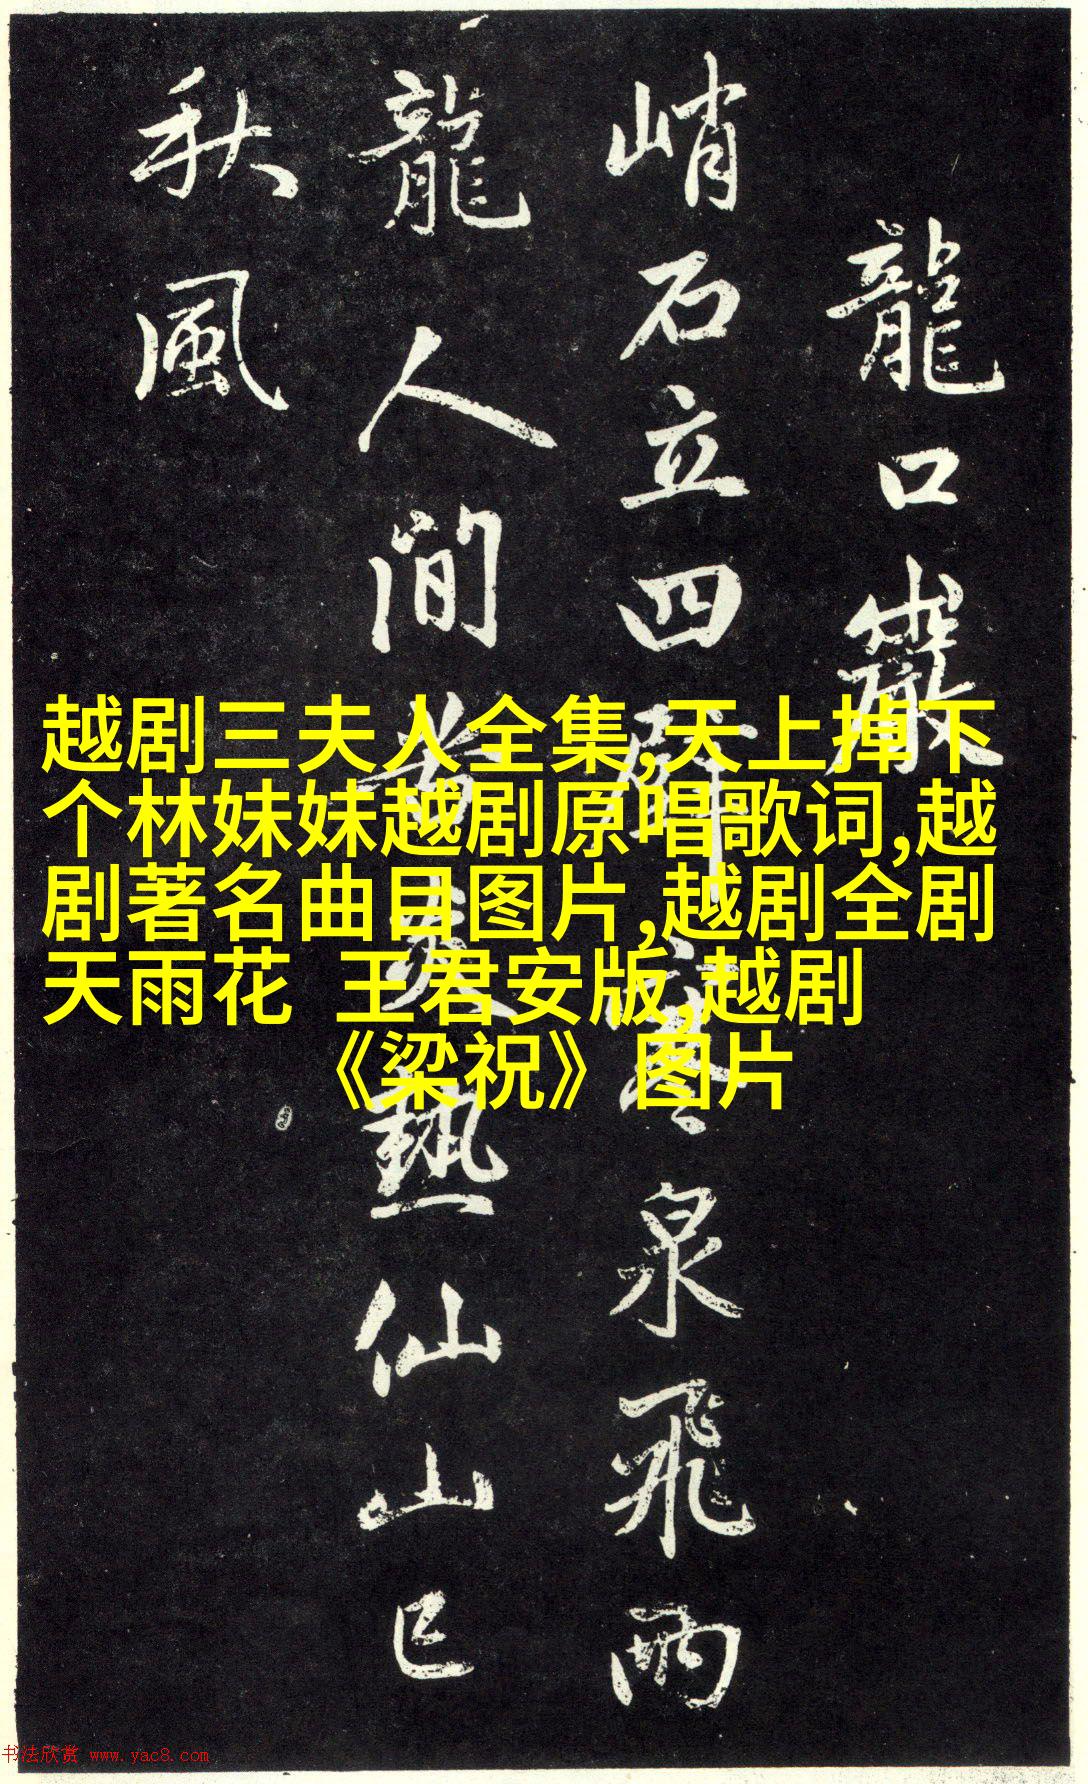 龍口巖
峭石立四壁寒泉飛兩
龍人間苦炎熱仙山已
秋風
越剧三夫人全集,天上掉下
个林妹妹越剧原唱歌词,越
剧著名曲目图片,越剧全剧
天雨花 王君安版,越剧
《梁祝》图片
书法欣赏 www.yac8.com